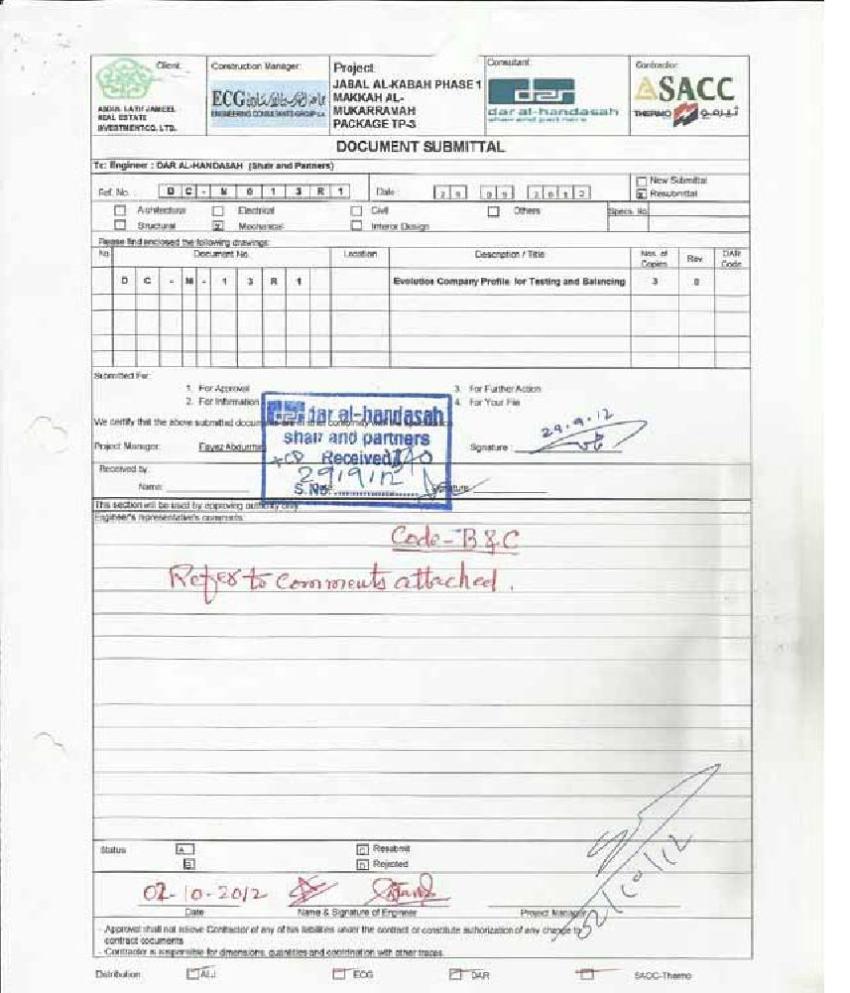 Client:
ABDUL LATIF JAMEEL
REAL ESTATE
INVESTMENT CO. LTD.
Construction Manager:
ECG
ENGINEERING CONSULTANTS GROUP S.A.
Project:
JABAL AL-KABAH PHASE 1
MAKKAH AL-
MUKARRAMAH
PACKAGE TP-3
Consultant:
dar
dar al-handasah
shair and partners
Contractor:
SACC
THERMO ثيرمو
DOCUMENT SUBMITTAL
To: Engineer : DAR AL-HANDASAH (Shair and Partners)
Ref. No. : D C - M 0 1 3 R 1
Date 29 09 2012
New Submittal
x Resubmittal
Architectural Electrical Civil Others Specs. No.
Structural x Mechanical Interior Design
Please find enclosed the following drawings:
No. Document No. Location Description / Title Nos. of Copies Rev. DAR Code
D C - M - 1 3 R 1 Evolution Company Profile for Testing and Balancing 3 0
Submitted For:
1. For Approval 3. For Further Action
2. For Information 4. For Your File
We certify that the above submitted
Project Manager:
Signature :
29.9.12
dar al-handasah
shair and partners
+CD Received
29/9/12
S. No.
Received by:
Name:
Signature:
This section will be used by approving authority only
Engineer's representative's comments:
Code - B & C
Refer to comments attached.
Status A C Resubmit
B D Rejected
02-10-2012
Date Name & Signature of Engineer Project Manager
- Approval shall not relieve Contractor of any of his liabilities under the contract or constitute authorization of any change to
contract documents
- Contractor is responsible for dimensions, quantities and coordination with other traces.
Distribution ALJ ECG DAR SACC-Thermo